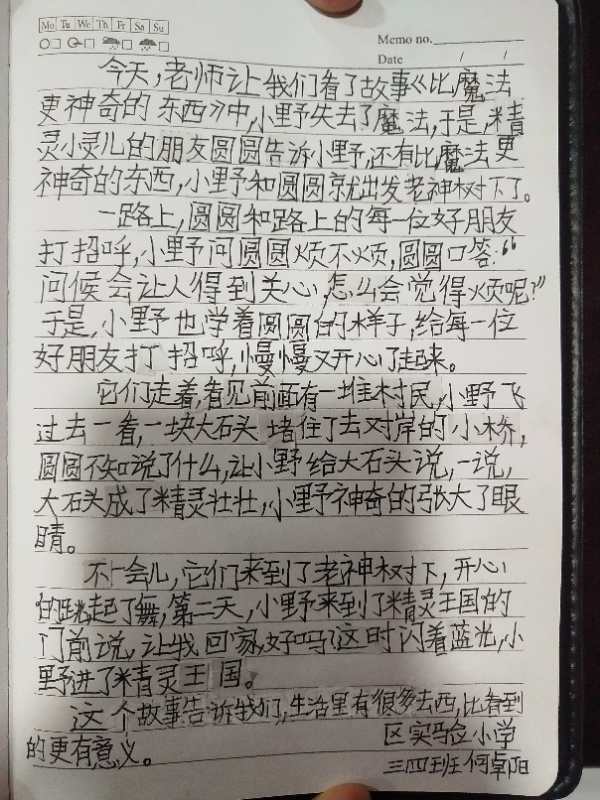 Mo Tu We Th Fr Sa Su
Memo no.
Date / /
今天,老师让我们看了故事《比魔法
更神奇的东西》中,小野失去了魔法,于是,精
灵小灵儿的朋友圆圆告诉小野,还有比魔法更
神奇的东西,小野和圆圆就出发老神树下了。
一路上,圆圆和路上的每一位好朋友
打招呼,小野问圆圆烦不烦,圆圆口答:“
问候会让人得到关心,怎么会觉得烦呢?”
于是,小野也学着圆圆的样子,给每一位
好朋友打招呼,慢慢又开心了起来。
它们走着,看见前面有一堆村民,小野飞
过去一看,一块大石头堵住了去对岸的小桥,
圆圆不知说了什么,让小野给大石头说,一说,
大石头成了精灵壮壮,小野神奇的张大了眼
睛。
不一会儿,它们来到了老神树下,开心
的跳起了舞,第二天,小野来到了精灵王国的
门前说,让我回家,好吗?这时闪着蓝光,小
野进了精灵王国。
这个故事告诉我们,生活里有很多去西,比看到
的更有意义。
区实马佥小学
三四班何卓阳